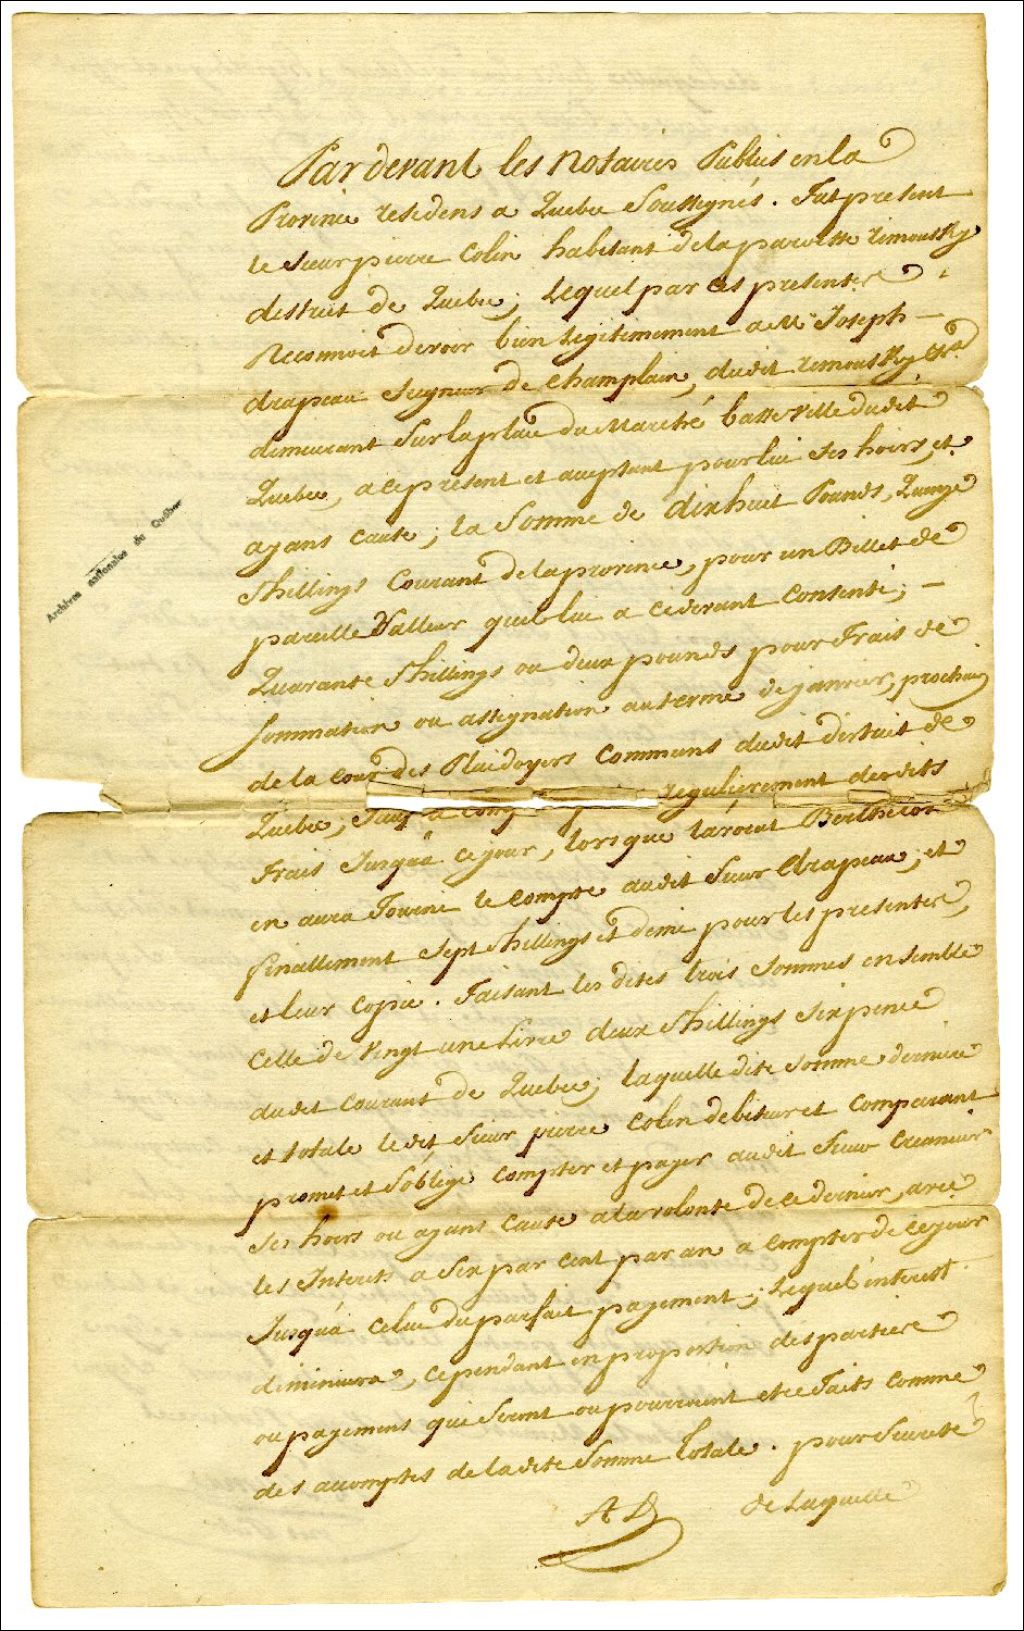 Pardevant les Notaires Publics en la
Province residens a Quebec Soussignés. Fut present
le Sieur pierre Colin habitant de la paroisse rimousky
district de Quebec; lequel par ces presentes
Reconnoit devoir bien legitimement a Mr Joseph
drapeau Seigneur de Champlain, dudit rimousky &ra
demeurant Sur la place du Marché basse ville dudit
Quebec, a ce present et aceptant pour lui Ses hoirs et
ayans cause; la Somme de dix huit Pounds, Quinze
Shillings Courant de la province, pour un Billet de
pareille Valleur quil lui a cidevant Consenti;
Quarante Shillings ou deux pounds pour Frais de
Sommation ou assignation au terme de janvier, prochain
de la Cour des Plaidoyers Communs dudit district de
Quebec; Sauf a regulierement desdits
Frais Jusqu'a ce jour, lorsque lavocat Berthelot
en aura Fourni le Compte audit Sieur drapeau; et
finallement Sept Shillings et demi pour les presentes,
et leur Copie. Faisant les dites trois Sommes ensemble
Celle de Vingt une Livre deux Shillings Six pence
dudit Courant de Quebec; laquelle dite Somme derniere
et totale ledit Sieur pierre Colin debiteur et Comparant
promet et S'oblige Compter et payer audit Sieur Creancier
Ses hoirs ou ayans Cause a la volonté de ce dernier, avec
les Interets a Six par Cent par an a Compter de ce jour
Jusqu'a celui du parfait payement; lequel interest
diminuera, cependant en proportion des parties
ou payemens qui Seront ou pourroient etre Faits Comme
des accomptes de ladite Somme totale. pour Sureté
AD de laquelle
Archives nationales du Québec